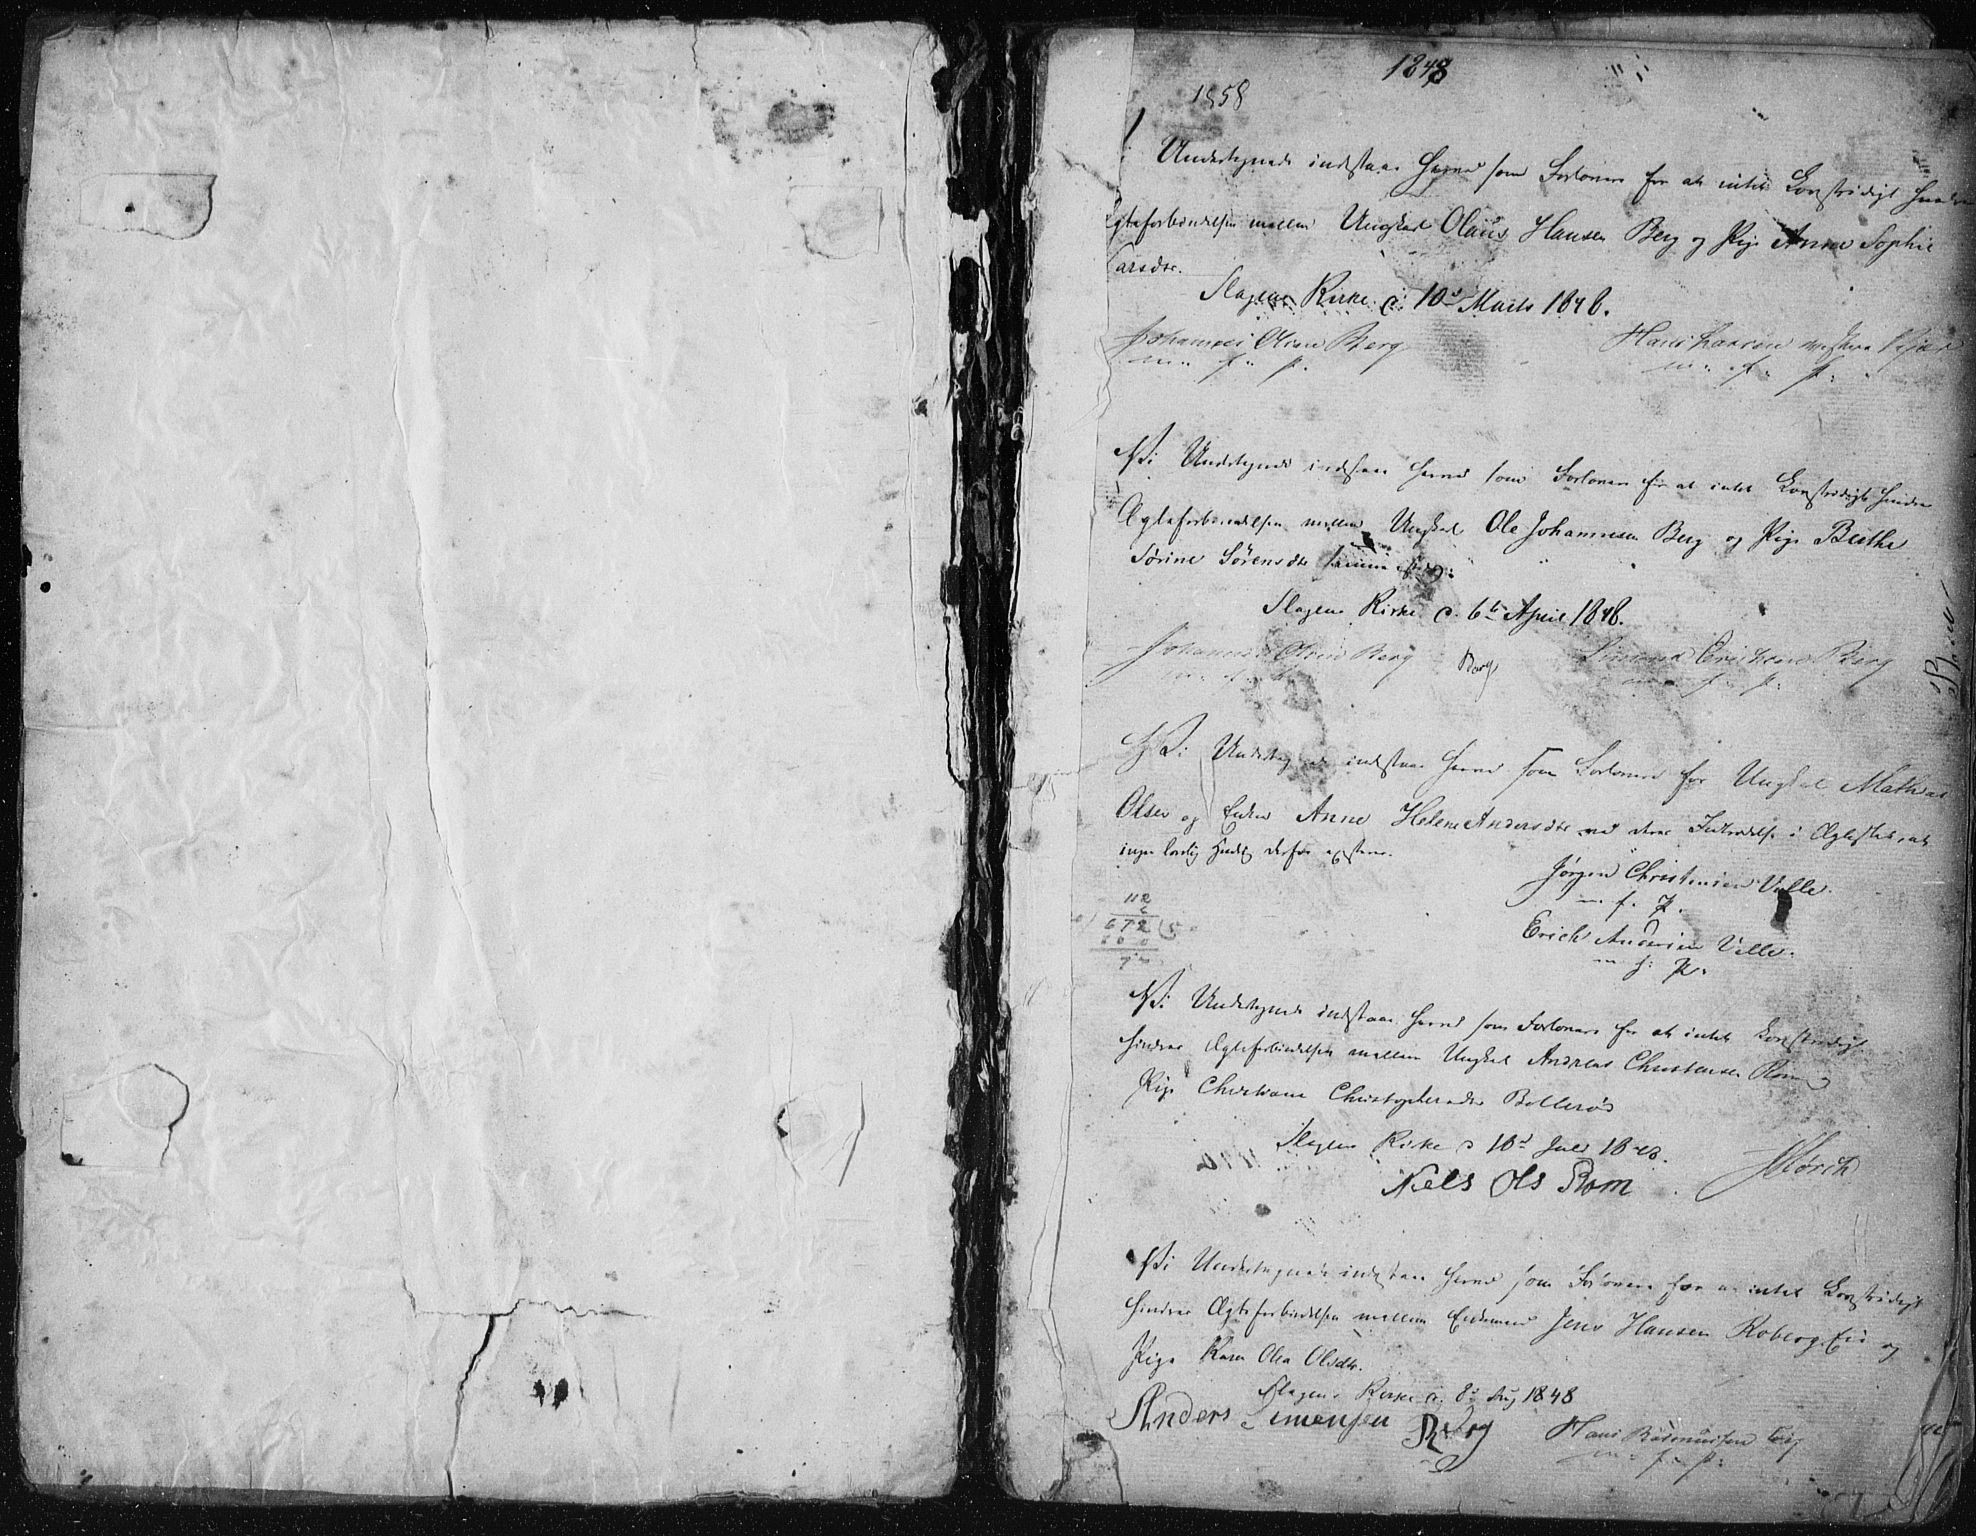 1848
1858
Undertegnede indstaae herved som Forlovere for at intet Lovstridigt hindrer
Ægteforbindelsen mellem Ungkarl Olaus Hansen Berg og Pige Anne Sophie
Larsdtr.
Slagens Kirke d. 10d Marts 1848.
Johannes Olsen Berg Hans Larsen
m. f. p. m. f. p.
Vi Undertegnede indstaae herved som Forlovere for at intet Lovstridigt hindrer
Ægteforbindelsen mellem Ungkarl Ole Johannesen Berg og Pige Berthe
Sørine Sørensdtr samme
Slagens Kirke d. 6te April 1848.
Johannes Olsen Berg Berg Simend Erichsen Berg
m. f. p. m. f. p.
Vi Undertegnede indstaae herved som Forlovere for Ungkarl Mathias
Olsen og Enken Anne Helene Andersdtr ved deres Indtrædelse i Ægtestand, at
ingen lovlig Hindring derfor existerer.
Jørgen Christensen Velle.
m. f. P.
Erich Andersen Velle.
m. f. P.
112
6
672 (5
60 0
7
Vi Undertegnede indstaae herved som Forlovere for at intet Lovstridigt
hindrer Ægteforbindelsen mellem Ungkarl Andreas Christensen Rom og
Pige Christiane Christophersdtr Bollerøs
Slagens Kirke d 18d Juli 1848.
Niels Ols Rom
Vi Undertegnede indstaae herved som Forlovere for at intet Lovstridigt
hindrer Ægteforbindelsen mellem Enkemand Jens Hansen Roberg Eie og
Pige Karen Olea Olsdtr.
Slagens Kirke d. 8d Aug 1848
Anders Simensen Berg Hans Rasmussen
m. f. p.